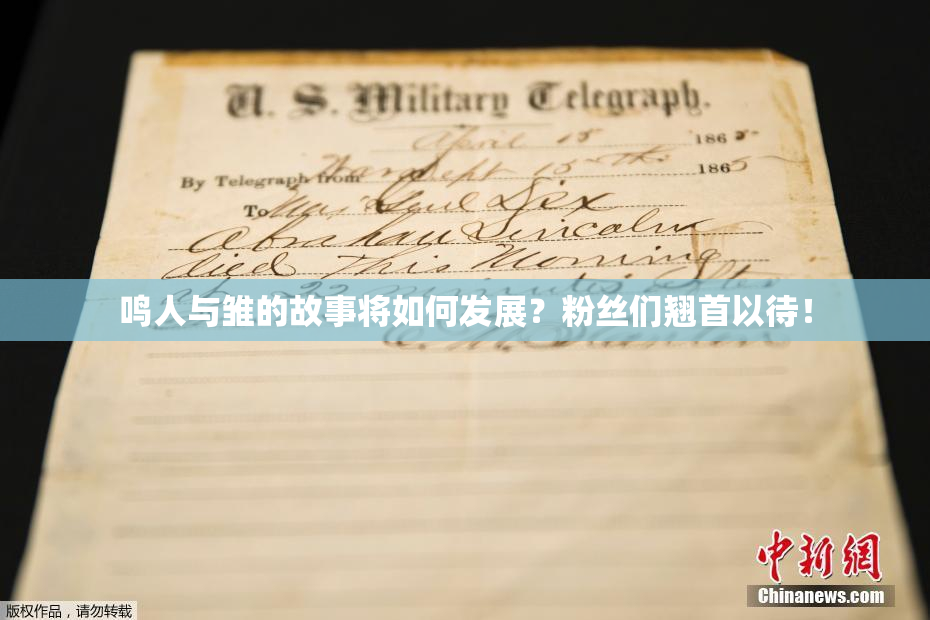 U. S. Military Telegraph.
April 15 1865.
By Telegraph from War Dept 15th 1865
To Maj Genl Dix
Abraham Lincoln
died This Morning
at 22 minutes after
鸣人与雏的故事将如何发展？粉丝们翘首以待！
E. M. Stanton
中新网
Chinanews.com
版权作品，请勿转载